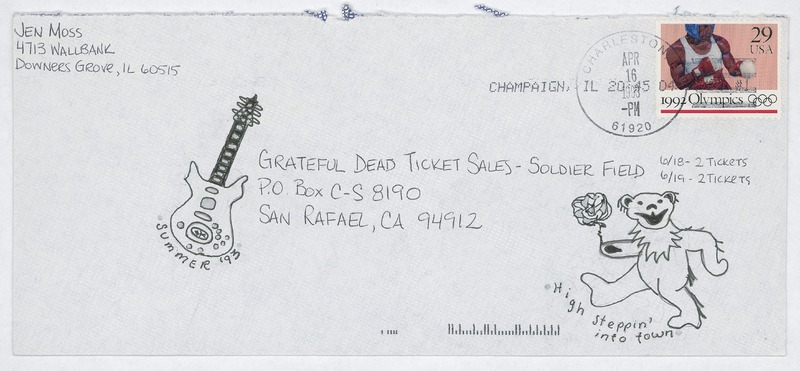 JEN MOSS
4713 WALLBANK
DOWNERS GROVE, IL 60515
29
USA
1992 Olympics
CHARLESTON
APR
16
1993
-PM
61920
CHAMPAIGN, IL 20 45 04
#1
GRATEFUL DEAD TICKET SALES - SOLDIER FIELD
P.O. BOX C-S 8190
SAN RAFAEL, CA 94912
6/18 - 2 TICKETS
6/19 - 2 TICKETS
SUMMER '93
High steppin'
into town